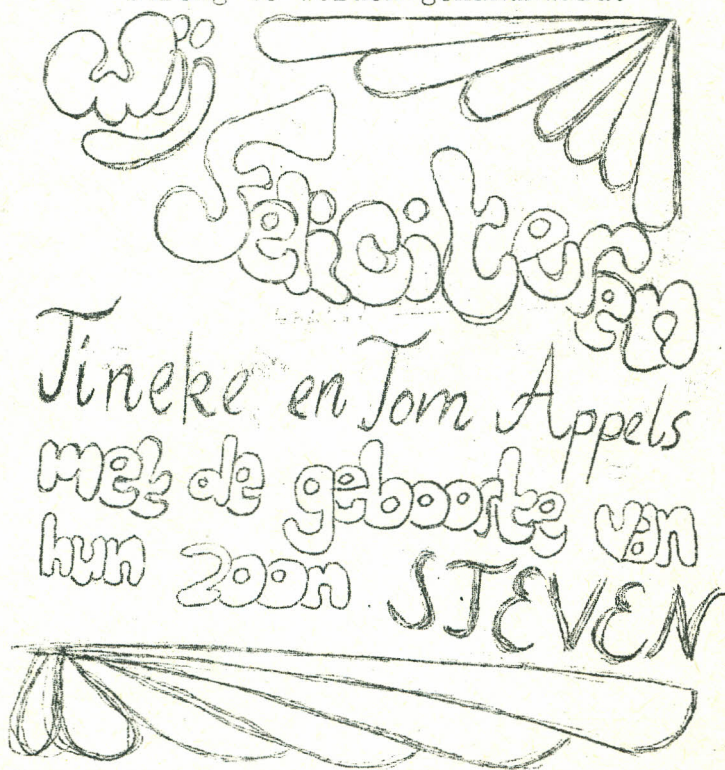 Wij
Feliciteren
Tineke en Tom Appels
met de geboorte van
hun zoon STEVEN